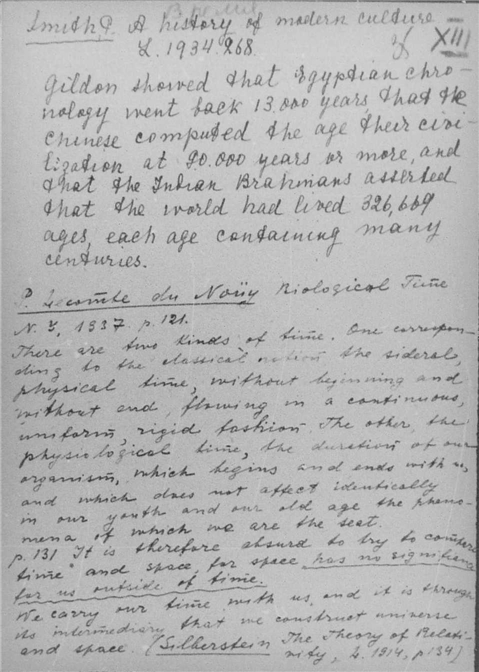 Время
Smith, P. A history of modern culture
L. 1934. 268.
XIII
Gildon showed that Egyptian chro-
nology went back 13.000 years, that the
Chinese computed the age their civi-
lization at 90.000 years or more, and
that the Indian Brahmans asserted
that the world had lived 326,669
ages, each age containing many
centuries.
P. Lecomte du Noüy Biological Time
N. Y, 1937. p. 121.
There are two kinds of time. One correspon-
ding to the classical notion the sideral,
physical time, without beginning and
without end, flowing in a continuous,
uniform, rigid fashion. The other, the
physiological time, the duration of our
organism, which begins and ends with us,
and which does not affect identically
in our youth and our old age the pheno-
mena of which we are the seat.
p. 131 It is therefore absurd to try to compare
time and space, for space has no significance
for us outside of time.
We carry our time with us, and it is through
its intermediary that we construct universe
and space. (Silberstein The Theory of Relati-
vity, L. 1914, p. 134)